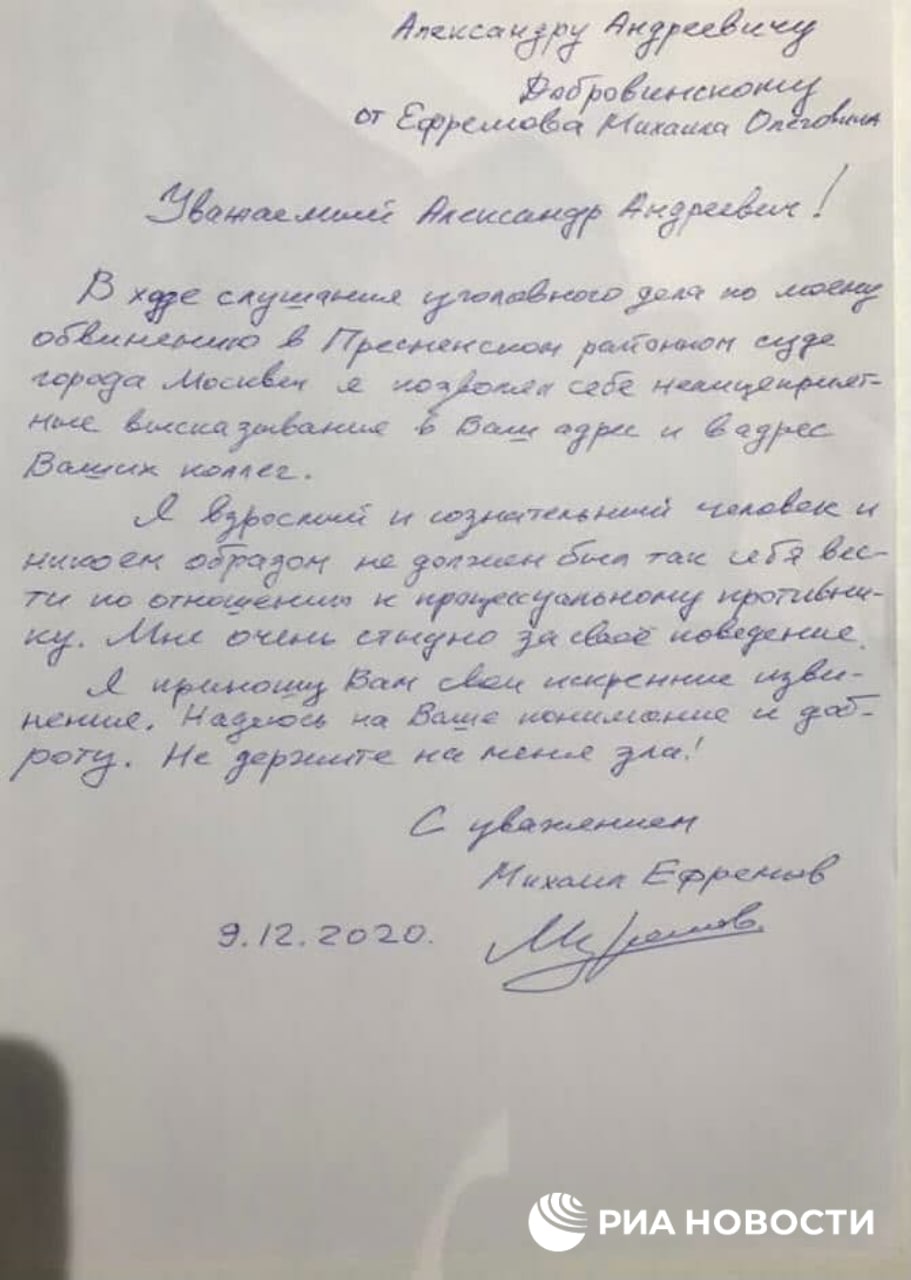 Александру Андреевичу
Добровинскому
от Ефремова Михаила Олеговича
Уважаемый Александр Андреевич!
В ходе слушания уголовного дела по моему
обвинению в Пресненском районном суде
города Москвы я позволял себе нелицеприят-
ные высказывание в Ваш адрес и в адрес
Ваших коллег.
Я взрослый и сознательный человек и
никоем образом не должен был так себя вес-
ти по отношению к процессуальному противни-
ку. Мне очень стыдно за своё поведение.
Я приношу Вам свои искренние изви-
нение. Надеюсь на Ваше понимание и доб-
роту. Не держите на меня зла!
С уважением
Михаил Ефремов
9.12.2020.
РИА НОВОСТИ